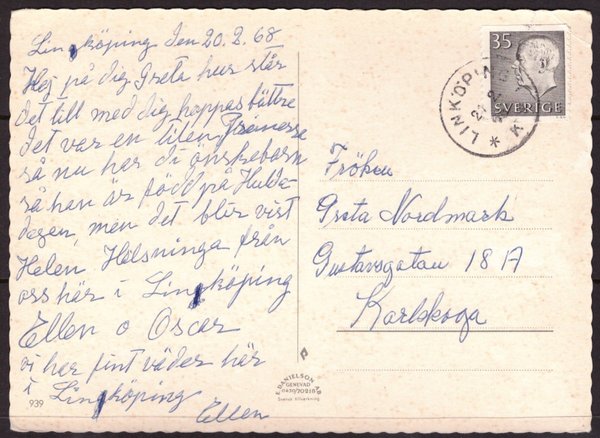 Lingköping den 20.2.68
Hej på dig Greta hur står
det till med dig hoppas bättre
det var en liten Prinsesse
så nu har di önskebarn
så han är född på Hulda-
dagen, men det blir vist
Helen Hälsninga från
oss här i Lingköping
Ellen o Oscar
vi har fint väder här
i Lingköping
Ellen
939
E. DANIELSON
GENEVAD
0430/70216
Svensk tillverkning
35
SVERIGE
LINKÖPIN
21.2
Fröken
Greta Nordmark
Gustavsgatan 18 A
Karlskoga